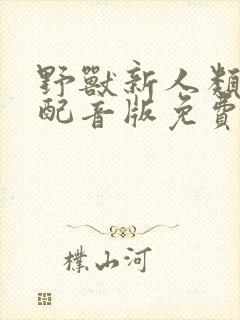 野獸新人類
配音版免費
檏山河